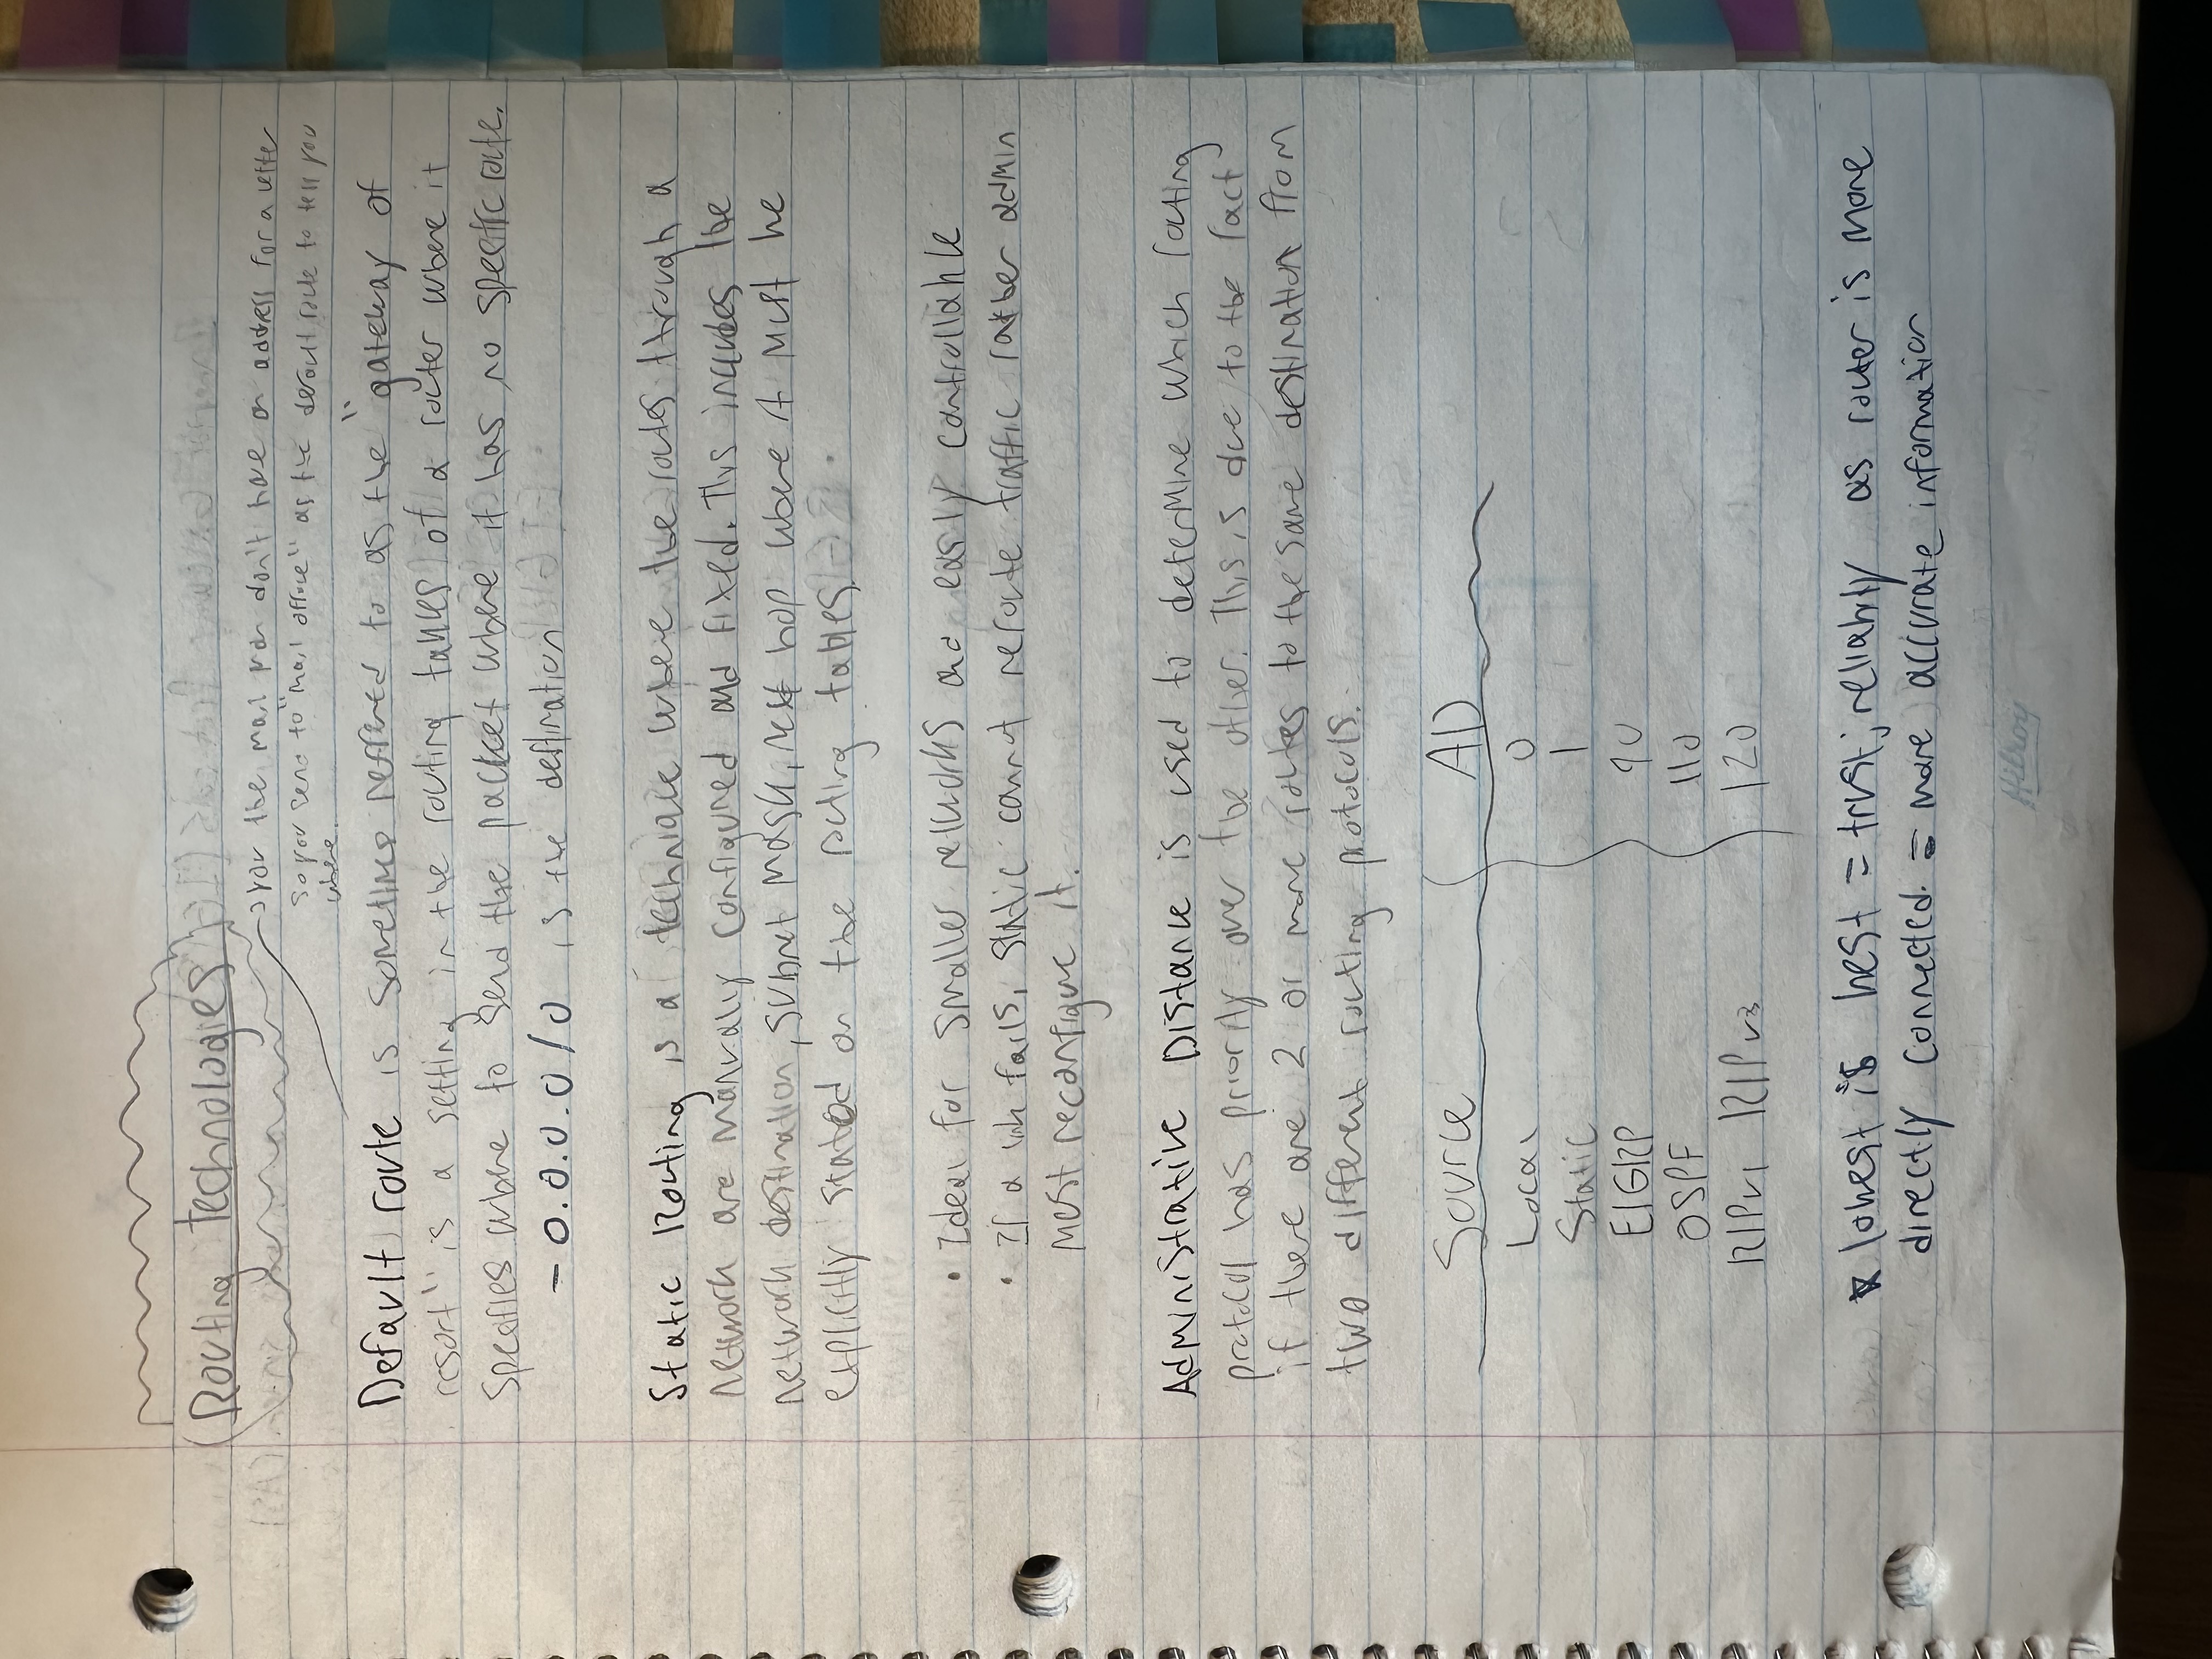 Routing Technologies
you the mail man don't have an address for a letter
so you send to "mail office" as the default route to tell you
where.
Default route is sometimes reffered to as the "gateway of
resort" is a setting in the routing tables of a router where it
specifies where to send the packet where it has no specific route.
- 0.0.0.0/0 is the destination
Static Routing is a technique where the routes through a
network are manually configured and fixed. This includes the
network destination, subnet mask, next hop where it must be
explicitly stated on the routing tables.
• Ideal for smaller networks and easily controllable
• If a link fails, static cannot reroute traffic rather admin
must reconfigure it.
Administrative Distance is used to determine which routing
protocol has priority over the other. This is due to the fact
if there are 2 or more routes to the same destination from
two different routing protocols.
Source AD
Local 0
Static 1
EIGRP 90
OSPF 110
RIPv1 120
* lowest is best = trust; reliabilty as router is more
directly connected. = more accurate information
Hilroy